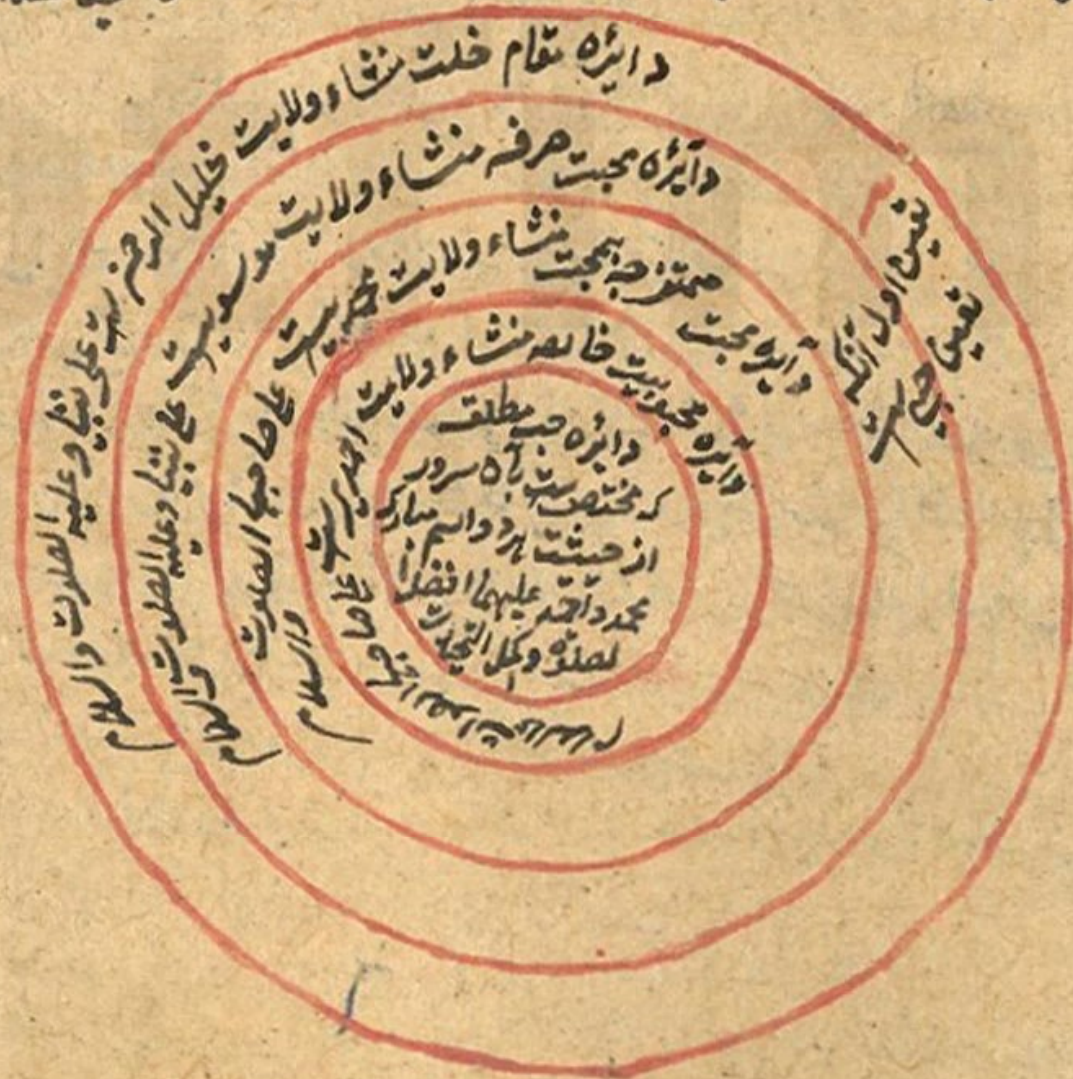 دایره مقام خلت منشاء ولایت خلیل الرحمن است علی نبینا وعلیه الصلوت والسلام
دایره محبت صرفه منشاء ولایت موسویست علی نبینا وعلیه الصلوت والسلام
دایره محبت ممتزجه بمحبت منشاء ولایت محمدیست علی صاحبها الصلوت والسلام
دایره محبوبیت خالصه منشاء ولایت احمدیست علی صاحبها
دایره حب مطلق
که مختص است بآن سرور
از حیثیت هر دو اسم مبارک
محمد و احمد علیهما افضل ا
لصلوة و اکمل التحیات
تعین اول
تعین حبی